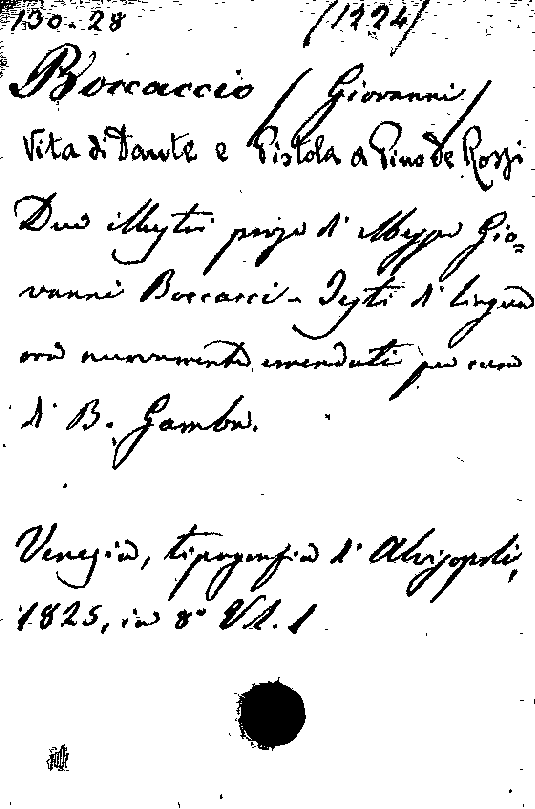 130-28 (1224)
Boccaccio (Giovanni)
Vita di Dante e Pistola a Pino de Rossi
Due illustri prose di Messer Gio=
vanni Boccacci - Testi di lingua
ora nuovamente emendati per cura
di B. Gamba.
Venezia, tipografia di Alvisopoli,
1825, in 8° Vol. 1